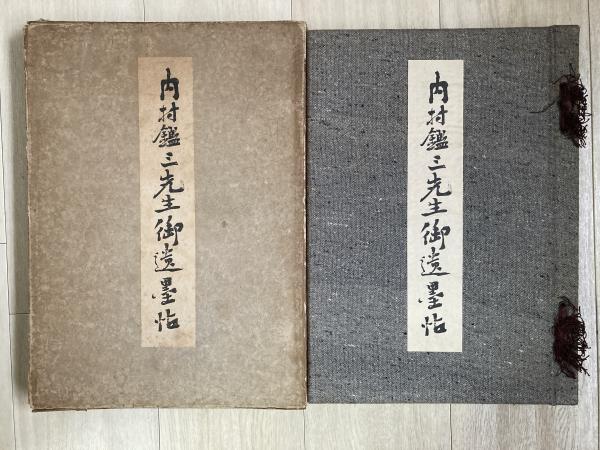 内村鑑三先生御遺墨帖
内村鑑三先生御遺墨帖